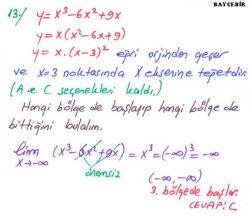 BAYCEBİR
13.) y = x³-6x²+9x
y = x.(x²-6x+9)
y = x.(x-3)² eğri orjinden geçer
ve x=3 noktasında X eksenine teğettir.
(A ve C seçenekleri kaldı.)
Hangi bölgede başlayıp hangi bölgede
bittiğini bulalım.
lim x→-∞ (x³-6x²+9x) = x³ = (-∞)³ = -∞
önemsiz
(-∞, -∞)
3. bölgede başlar.
CEVAP: C